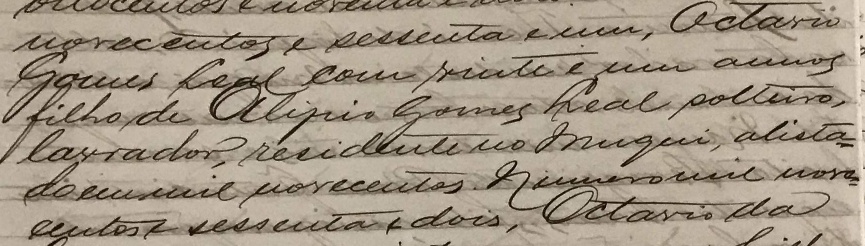 oitocentos e noventa e
novecentos e sessenta e um, Octavio
Gomes Leal com vinte e um annos
filho de Olipio Gomes Leal solteiro,
lavrador, residente no Muqui, alista=
do em mil novecentos. Numero mil nove=
centos e sessenta e dois, Octavio da